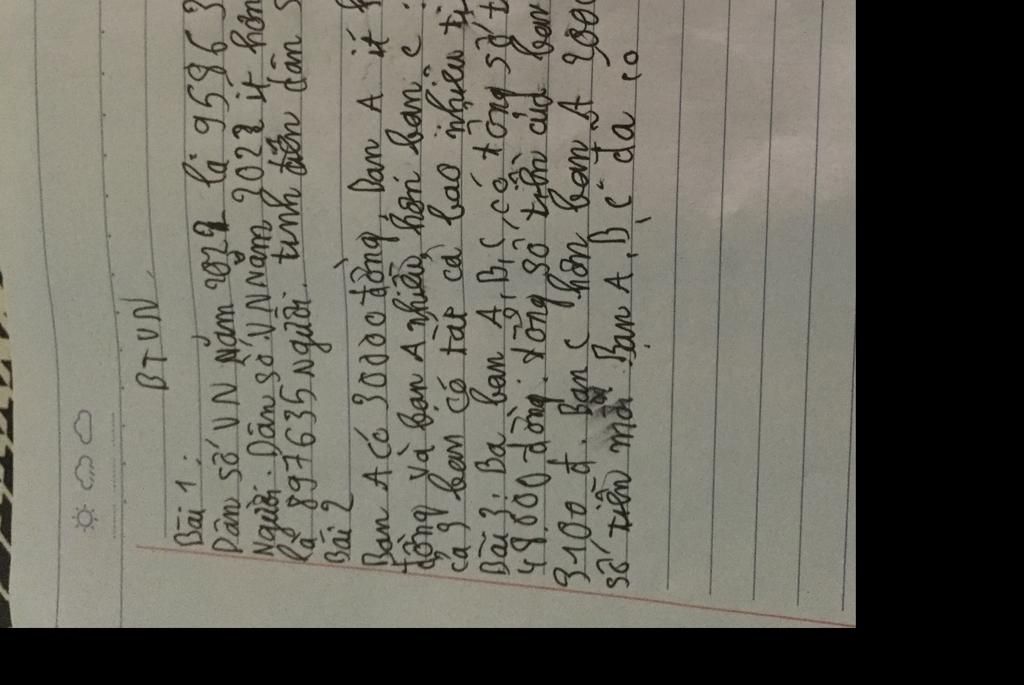 BTVN
Bài 1:
Dân số VN Năm 2021 là 9586 3
Người. Dân số VN Năm 2022 ít hơn
là 897635 Người. tính đến dân s
Bài 2
Bạn A có 30000 đồng, bạn A ít
đồng và bạn A nhiều hơn bạn C
cả 3 bạn có tất cả bao nhiêu ti
Bài 3: Ba bạn A, B, C, có tổng số t
48.000 đồng. tổng số tiền của bạn
3100 đ. Bạn C hơn bạn A 2000
số tiền mà Bạn A, B, C đa có